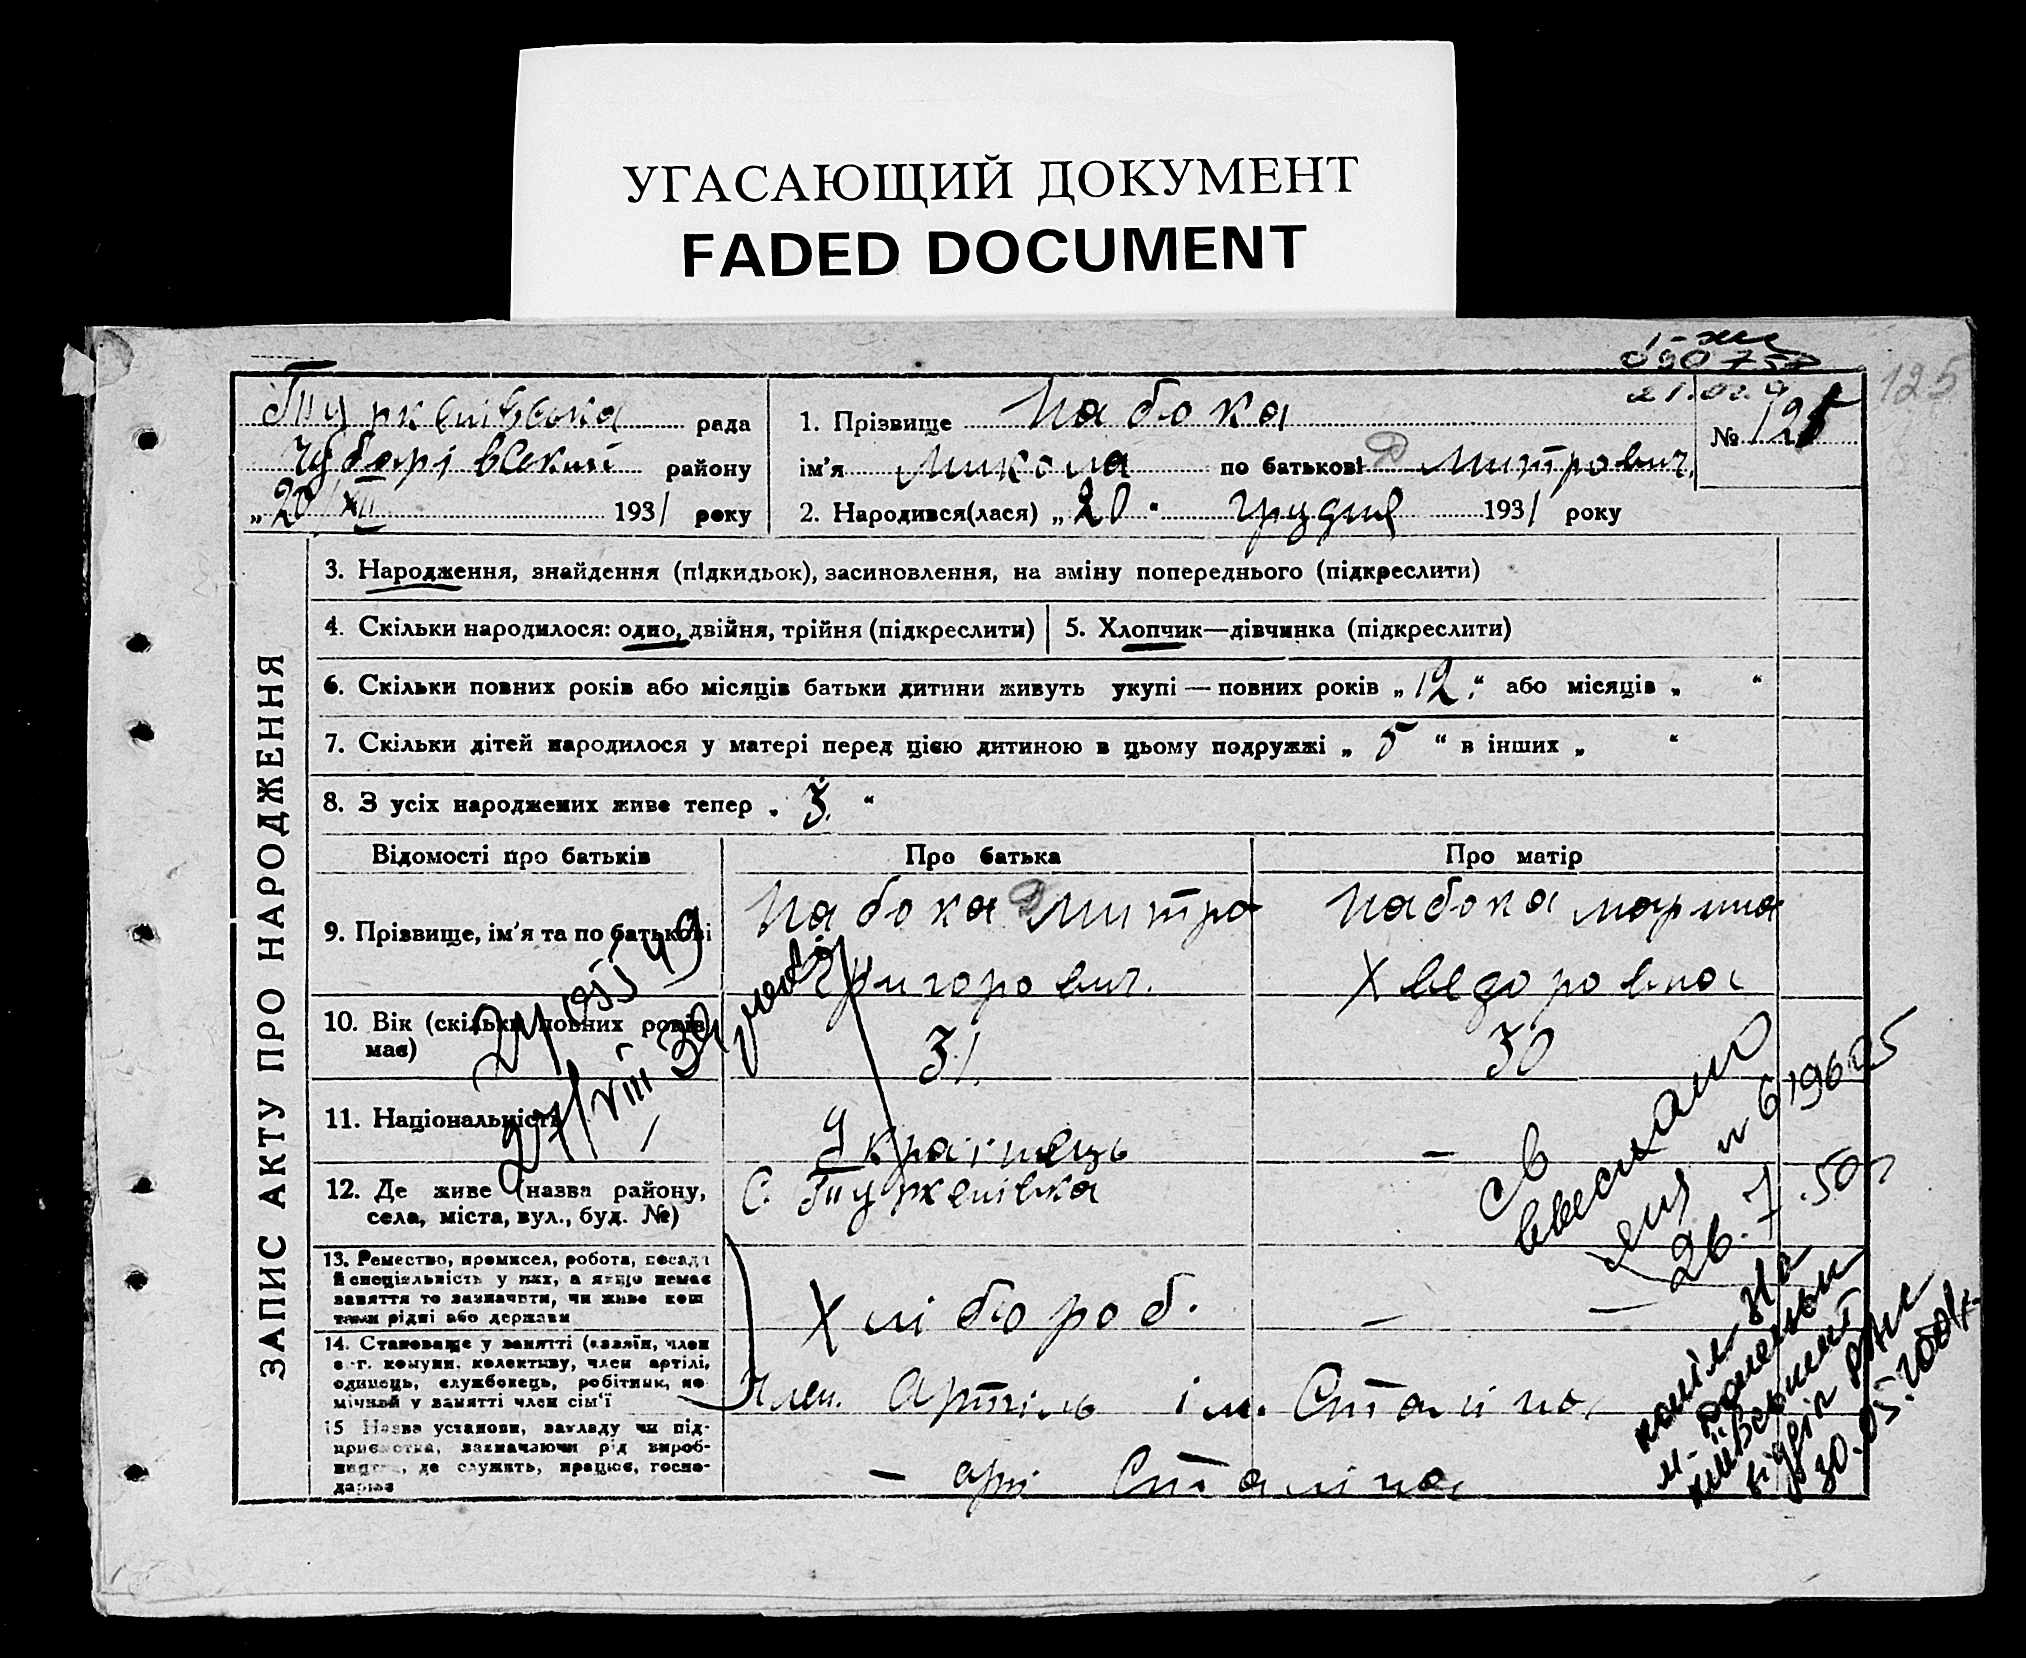 УГАСАЮЩИЙ ДОКУМЕНТ
FADED DOCUMENT
125
Туркенівська рада
Чубарівський району
„20 XII 1931 року
1. Прізвище Набока
№ 125
ім’я Микола по батькові Дмитрович.
2. Народився(лася) „20“ грудня 1931 року
ЗАПИС АКТУ ПРО НАРОДЖЕННЯ
3. Народження, знайдення (підкидьок), засиновлення, на зміну попереднього (підкреслити)
4. Скільки народилося: одно, двійня, трійня (підкреслити)
5. Хлопчик—дівчинка (підкреслити)
6. Скільки повних років або місяців батьки дитини живуть укупі — повних років „12“ або місяців „ “
7. Скільки дітей народилося у матері перед цією дитиною в цьому подружжі „ 5 “ в інших „ “
8. З усіх народжених живе тепер „ 3. “
Відомості про батьків
Про батька
Про матір
9. Прізвище, ім’я та по батькові
Набока Дмитро
Григорович.
Набока Марина
Хведоровна
10. Вік (скільки повних років має)
31.
30
11. Національність
Українець
—
12. Де живе (назва району,
села, міста, вул., буд. №)
С. Туркенівка
13. Ремество, промисел, робота, посада
й спеціяльність у них, а якщо немає
заняття то зазначити, чи живе кош
тами рідні або держави
Хлібороб.
—
14. Становище у занятті (хазяїн, член
с.-г. комуни, колективу, член артілі,
одинець, службовець, робітник, по
мічний у занятті член сім’ї
Член. Артіль ім. Сталіна
15 Назва установи, закладу чи під-
приємства, зазначаючи рід вироб-
ництва, де служить, працює, госпо-
дарює
— арт Сталіна
27/VIII 39
св
26.7.50г
30.05.2001г.